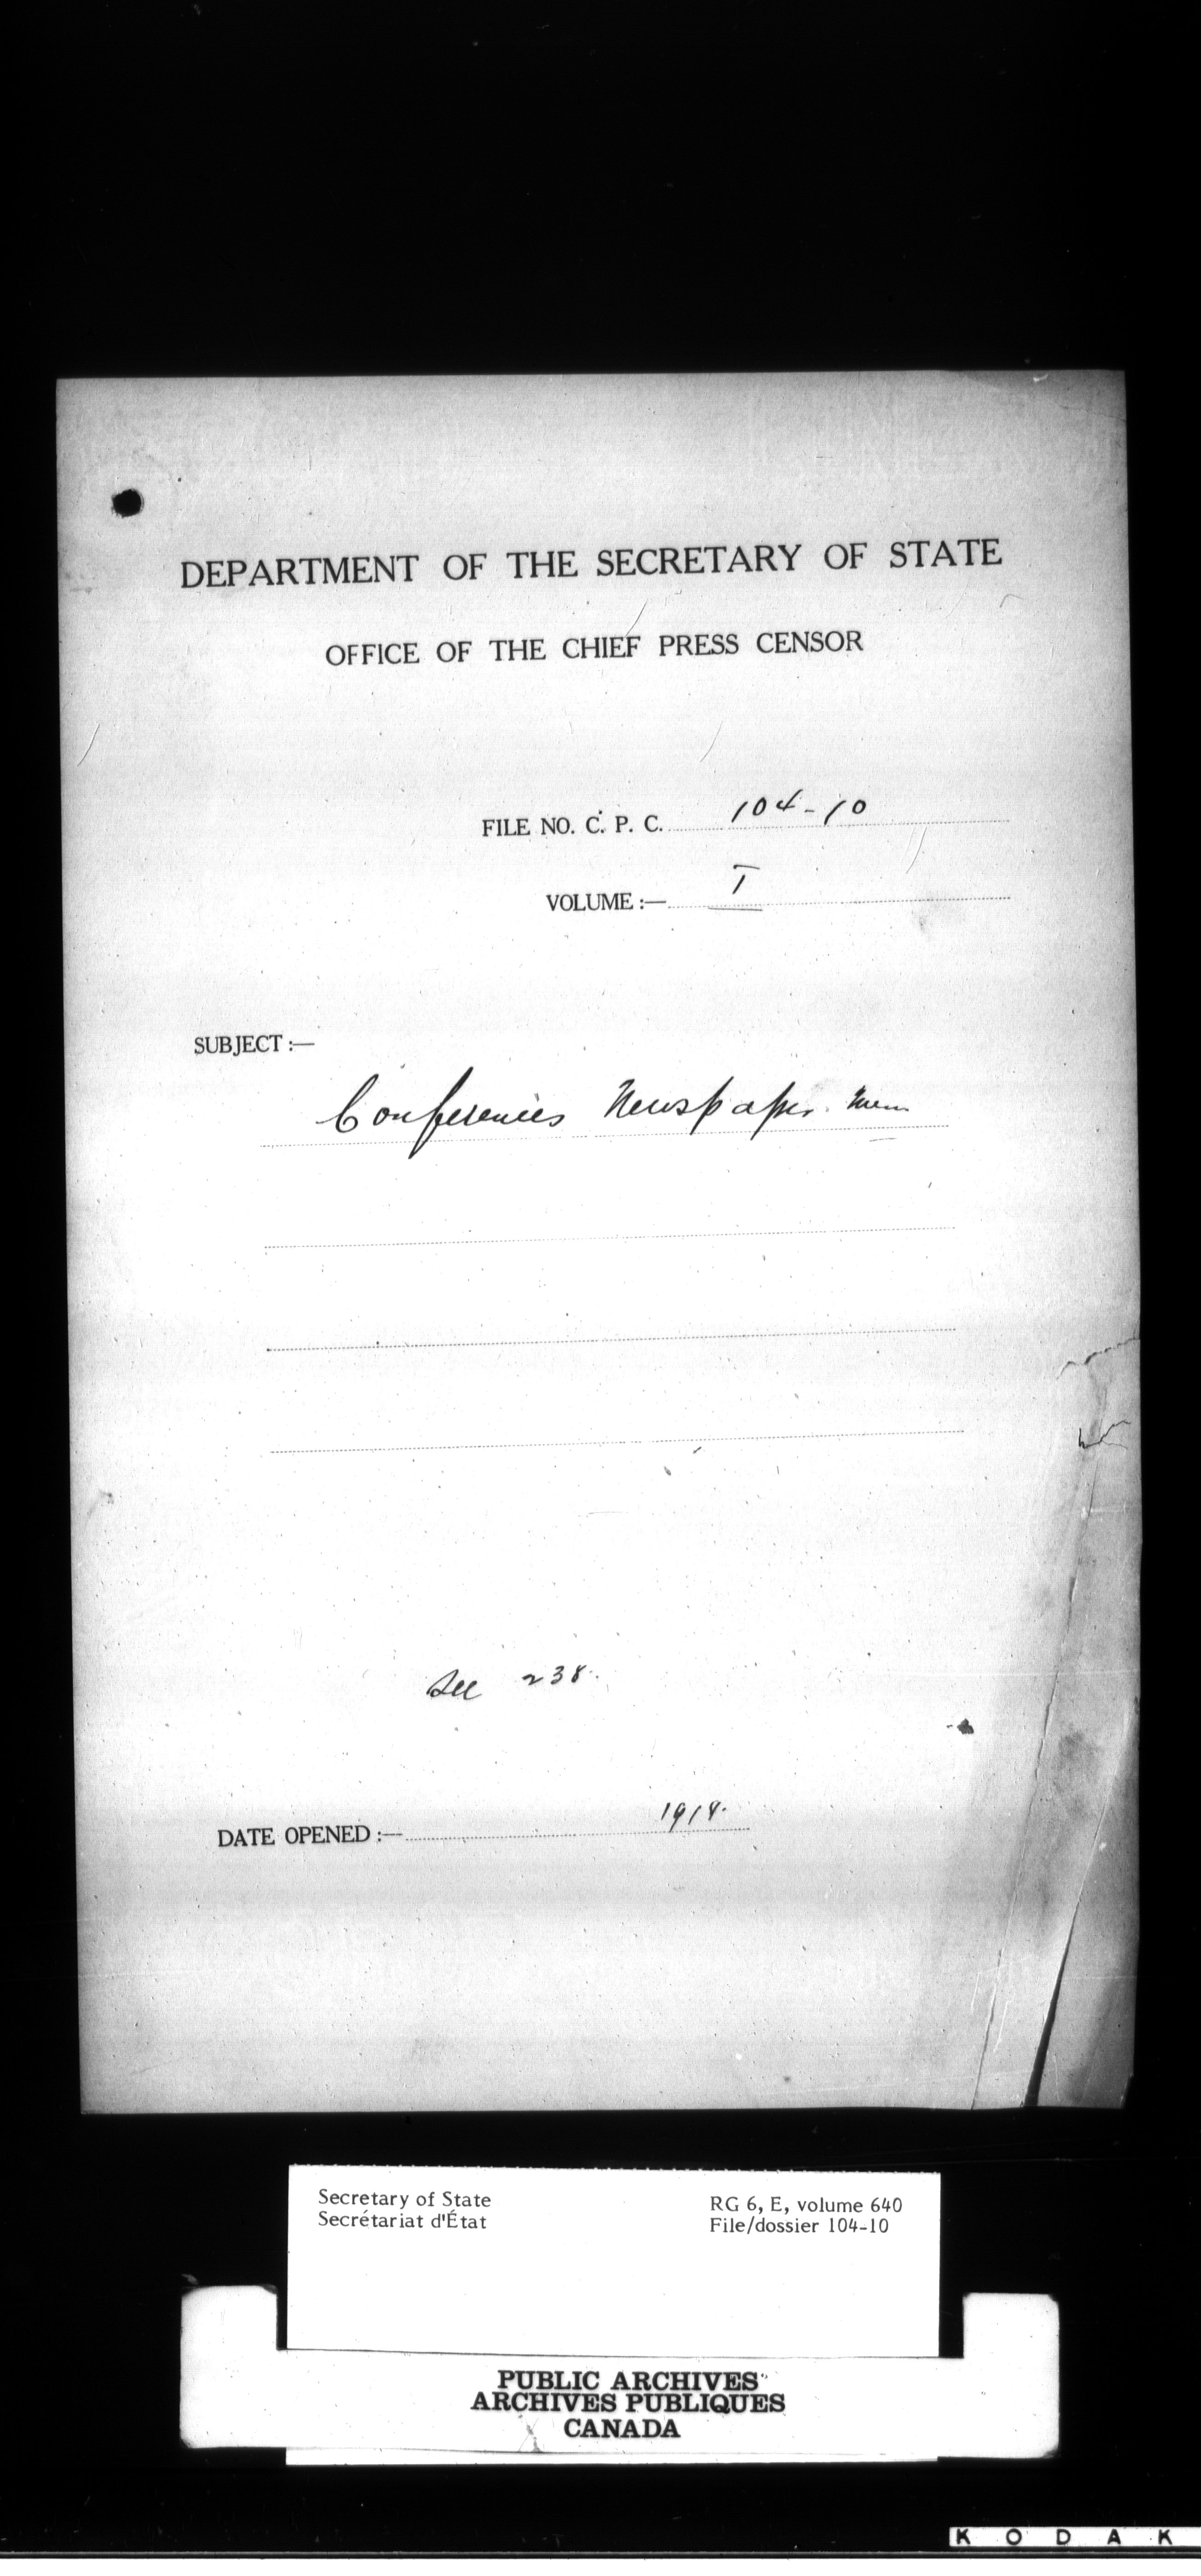 DEPARTMENT OF THE SECRETARY OF STATE
OFFICE OF THE CHIEF PRESS CENSOR
FILE NO. C. P. C. 104-10
VOLUME :— I
SUBJECT :—
Conferences Newspaper Men
See 238.
DATE OPENED :— 1918.
Secretary of State
Secrétariat d'État
RG 6, E, volume 640
File/dossier 104-10
PUBLIC ARCHIVES
ARCHIVES PUBLIQUES
CANADA
KODAK